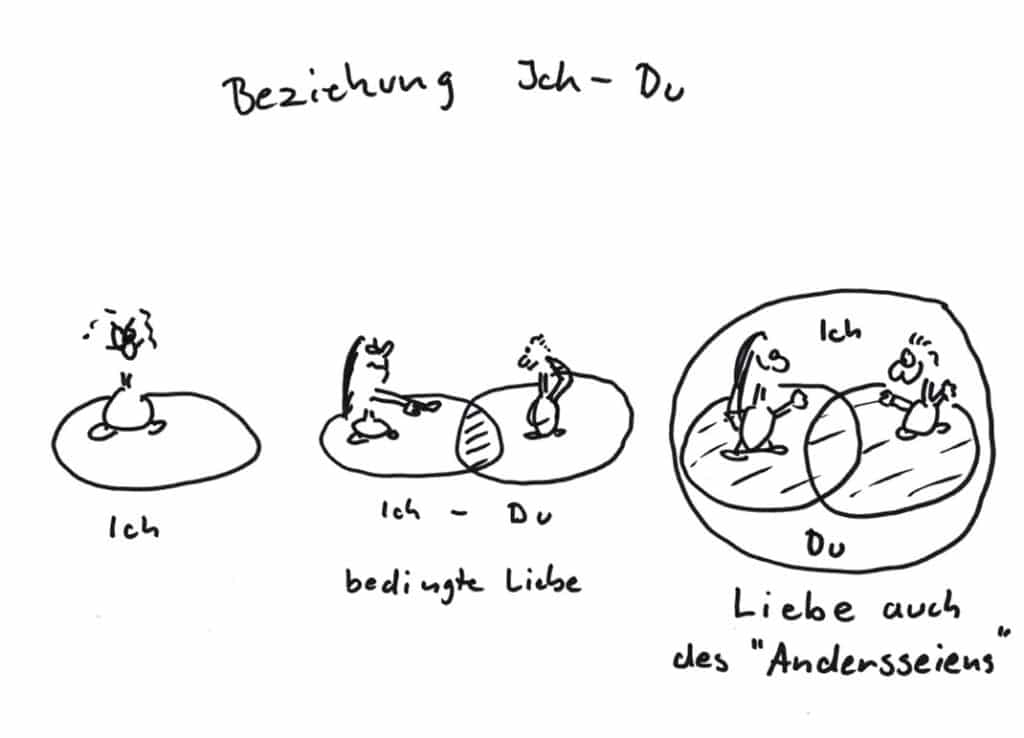 Beziehung Ich - Du
Ich
Ich - Du
bedingte Liebe
Ich
Du
Liebe auch
des "Andersseiens"